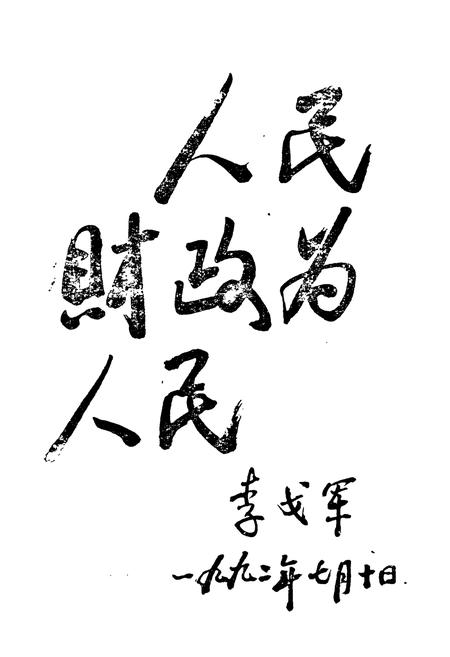 人民
財政为
人民
李成军
一九九二年七月十日